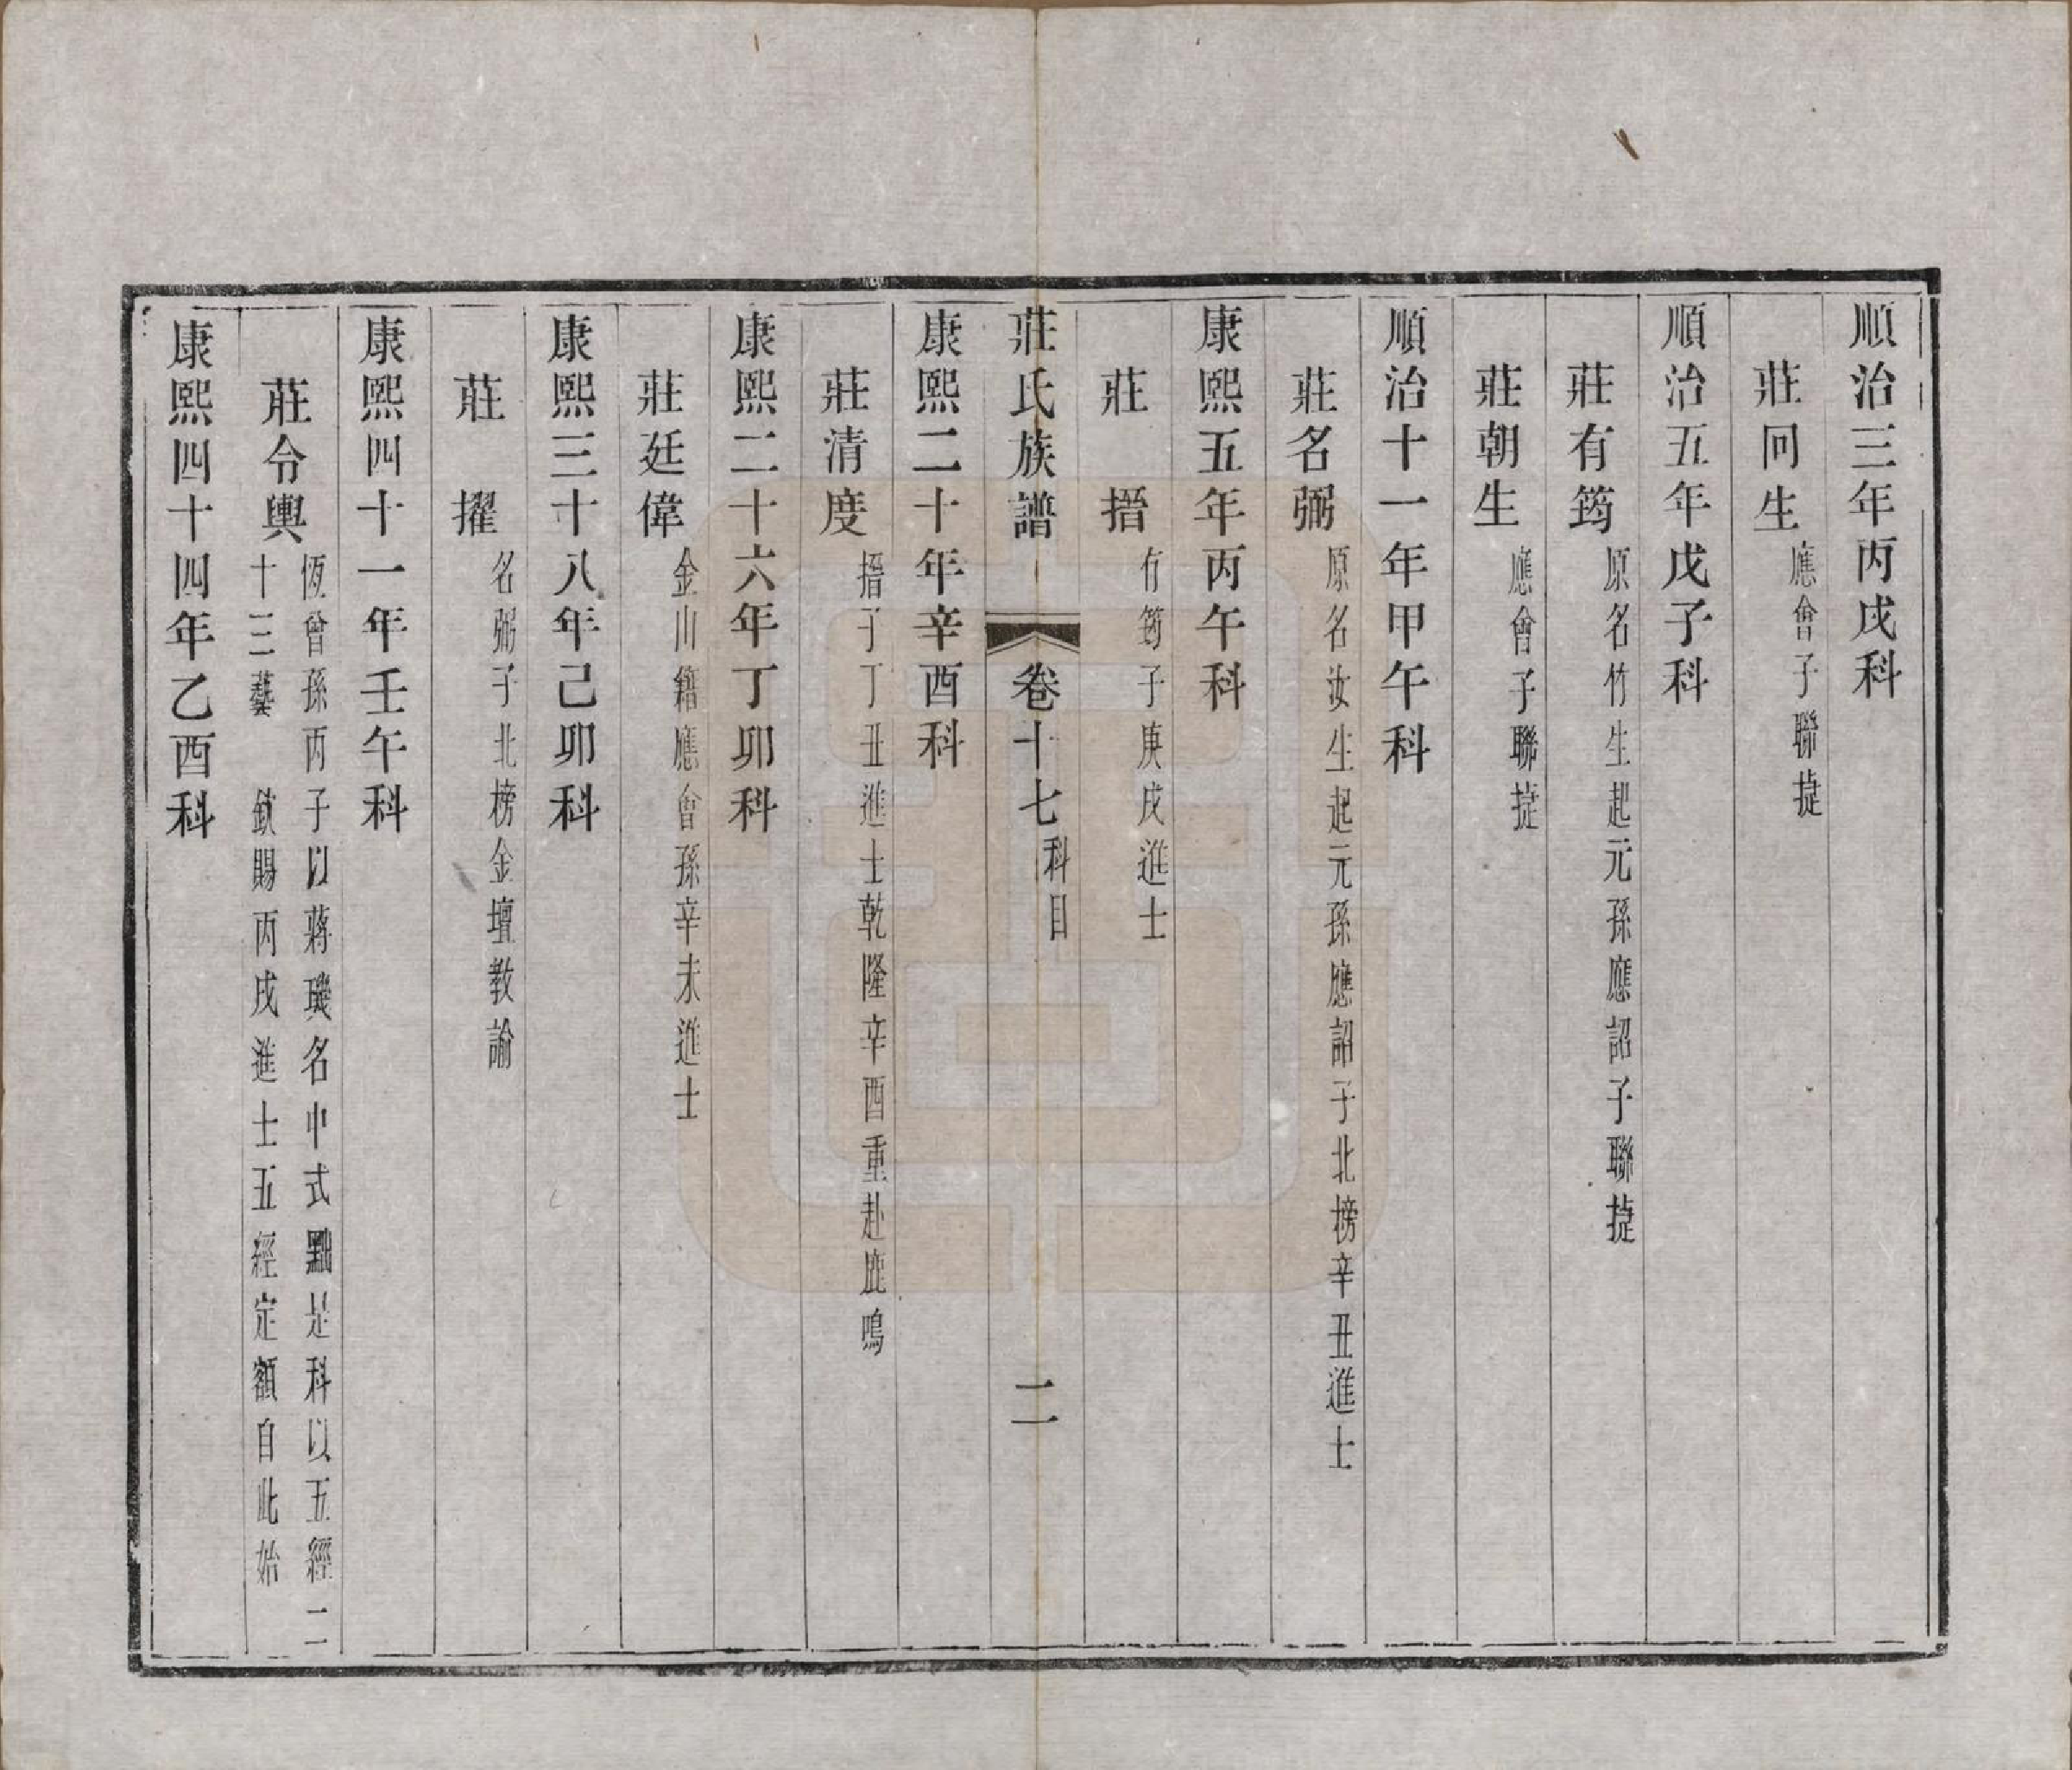 順治三年丙戌科
莊回生應會子聯捷
順治五年戊子科
莊有筠原名竹生起元孫應詔子聯捷
莊朝生應會子聯捷
順治十一年甲午科
莊名弼原名汝生起元孫應詔子北榜辛丑進士
康熙五年丙午科
莊搢有筠子庚戌進士
莊氏族譜 卷十七科目 二
康熙二十年辛酉科
莊清度搢子丁丑進士乾隆辛酉重赴鹿鳴
康熙二十六年丁卯科
莊廷偉金山籍應會孫辛未進士
康熙三十八年己卯科
莊擢名弼子北榜金壇教諭
康熙四十一年壬午科
莊令輿恆曾孫丙子以蔣璣名中式黜是科以五經二
十三藝 欽賜丙戌進士五經定額自此始
康熙四十四年乙酉科